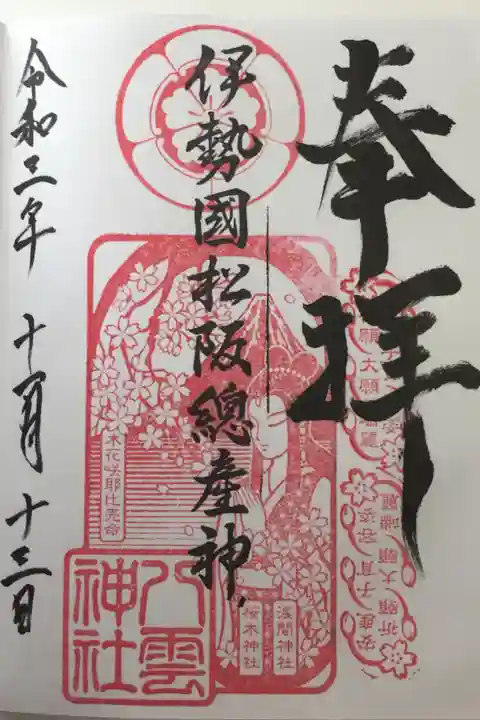 奉拝
伊勢國松阪總産神
令和三年 十一月 十三日
木花咲耶比売命
浅間神社
桜木神社
八雲神社